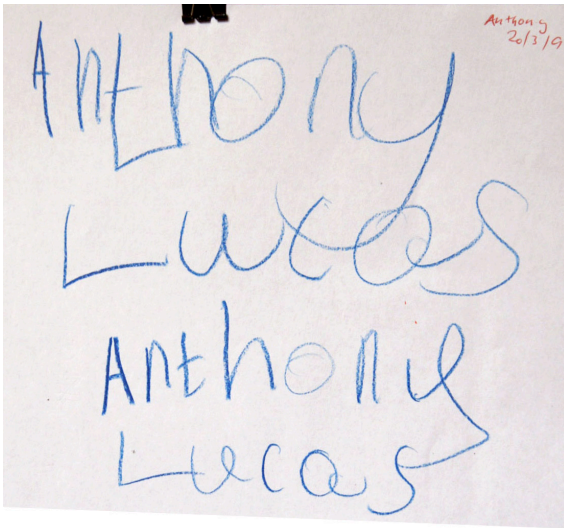 Anthony
20/3/9
Anthony
Lucas
Anthony
Lucas